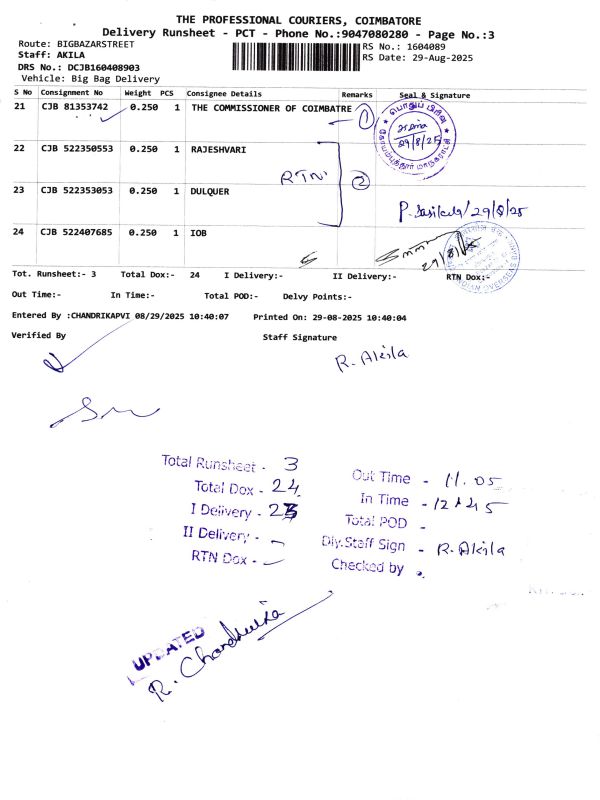 THE PROFESSIONAL COURIERS, COIMBATORE
Delivery Runsheet - PCT - Phone No.:9047080280 - Page No.:3
Route: BIGBAZARSTREET
RS No.: 1604089
Staff: AKILA
RS Date: 29-Aug-2025
DRS No.: DCJB160408903
Vehicle: Big Bag Delivery
S No Consignment No Weight PCS Consignee Details Remarks Seal & Signature
21 CJB 81353742 0.250 1 THE COMMISSIONER OF COIMBATRE 1
29/8/25
22 CJB 522350553 0.250 1 RAJESHVARI
RTN 2
23 CJB 522353053 0.250 1 DULQUER
P. Sasikala/29/8/25
24 CJB 522407685 0.250 1 IOB
29/8/25
INDIAN OVERSEAS
Tot. Runsheet:- 3 Total Dox:- 24 I Delivery:- II Delivery:- RTN Dox:-
Out Time:- In Time:- Total POD:- Delvy Points:-
Entered By :CHANDRIKAPVI 08/29/2025 10:40:07 Printed On: 29-08-2025 10:40:04
Verified By Staff Signature
R. Akila
Total Runsheet - 3
Total Dox - 24
I Delivery - 23
II Delivery - -
RTN Dox - -
Out Time - 11.05
In Time - 12.45
Total POD -
Dly.Staff Sign - R. Akila
Checked by -
UPDATED
R. Chandrika